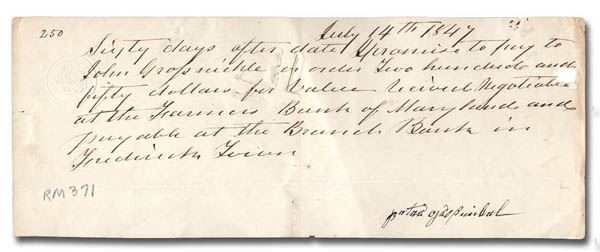 250
July 14th 1847
Sixty days after date I promise to pay to
John Grossnickle or order Two hundred and
fifty dollars for value recived Negotiable
at the Farmers Bank of Maryland and
payable at the Branch Bank in
Frederick Town
RM371